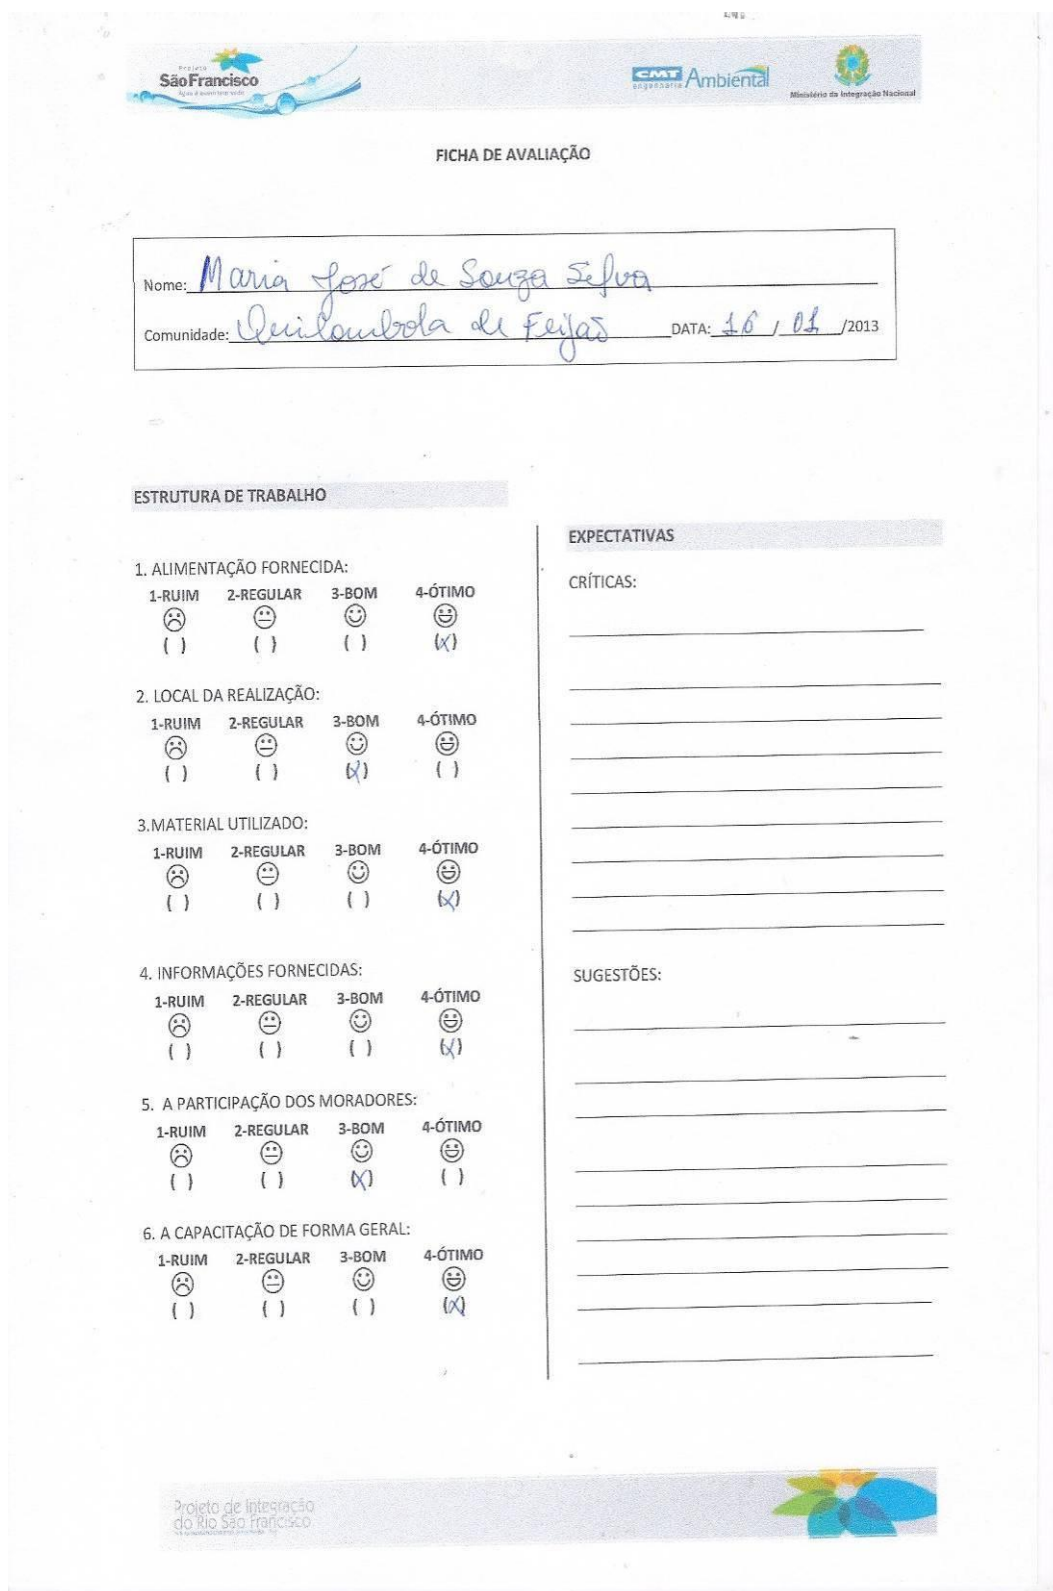 Projeto
São Francisco
CMT Ambiental
engenharia
Ministério da Integração Nacional
FICHA DE AVALIAÇÃO
Nome: Maria José de Souza Silva
Comunidade: Quilombola de Feijão DATA: 16 / 01 /2013
ESTRUTURA DE TRABALHO
1. ALIMENTAÇÃO FORNECIDA:
1-RUIM 2-REGULAR 3-BOM 4-ÓTIMO
( ) ( ) ( ) (x)
2. LOCAL DA REALIZAÇÃO:
1-RUIM 2-REGULAR 3-BOM 4-ÓTIMO
( ) ( ) (x) ( )
3.MATERIAL UTILIZADO:
1-RUIM 2-REGULAR 3-BOM 4-ÓTIMO
( ) ( ) ( ) (x)
4. INFORMAÇÕES FORNECIDAS:
1-RUIM 2-REGULAR 3-BOM 4-ÓTIMO
( ) ( ) ( ) (x)
5. A PARTICIPAÇÃO DOS MORADORES:
1-RUIM 2-REGULAR 3-BOM 4-ÓTIMO
( ) ( ) (x) ( )
6. A CAPACITAÇÃO DE FORMA GERAL:
1-RUIM 2-REGULAR 3-BOM 4-ÓTIMO
( ) ( ) ( ) (x)
EXPECTATIVAS
CRÍTICAS:
SUGESTÕES:
Projeto de Integração
do Rio São Francisco